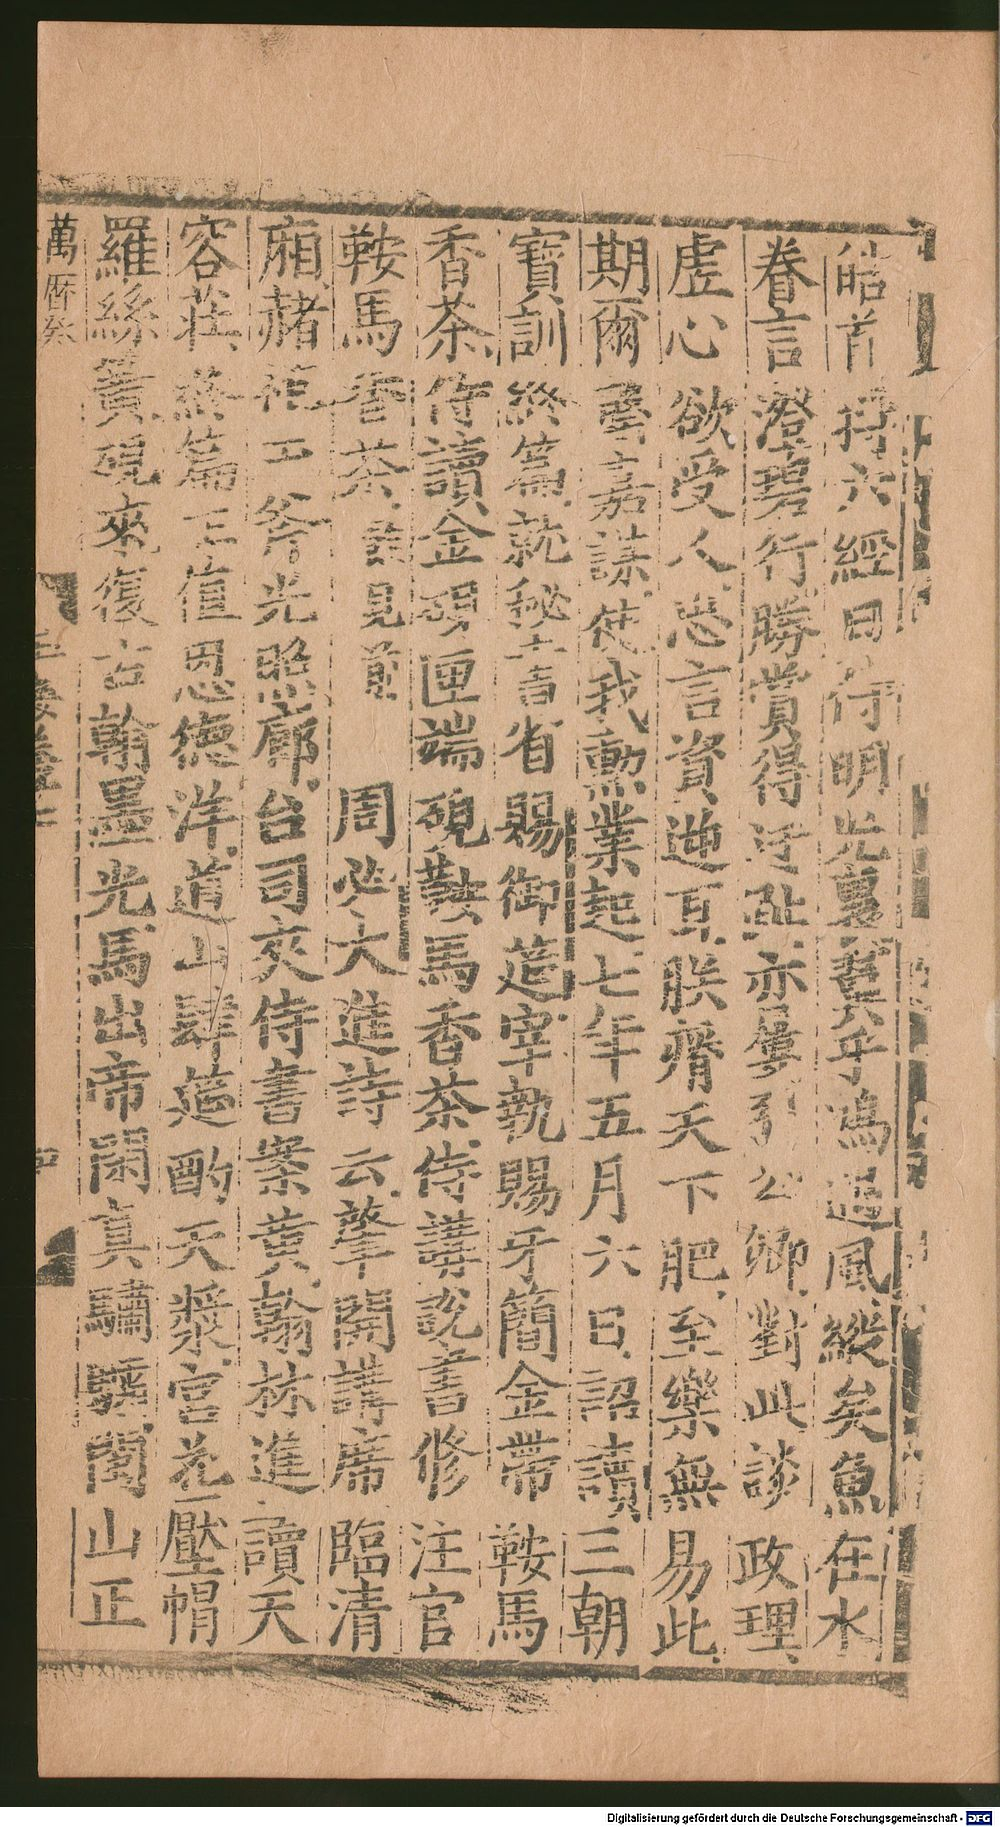 皓首持六經日侍明光裏冀乎鴻遇風縱矣魚在水
眷言澄碧行勝賞得迂趾亦屢引公卿對此談政理
虛心欲受人忠言資逆耳朕瘠天下肥至樂無易此
期爾嘉謀使我勳業起七年五月六日詔讀三朝
寶訓終篇就秘書省賜御筵宰執賜牙簡金帶鞍馬
香茶侍讀金硯匣端硯鞍馬香茶侍講說書修注官
鞍馬香茶前周必大進詩云華開講席臨清
廂赭袍光照廊台司夾侍書案黃翰林進讀天
容莊終篇正值恩德洋道山肆筵酌天漿宮花壓帽
羅絲簧硯來復古翰墨光馬出帝閑真驌驦閩山正
萬曆癸
玉海卷
Digitalisierung gefördert durch die Deutsche Forschungsgemeinschaft - DFG